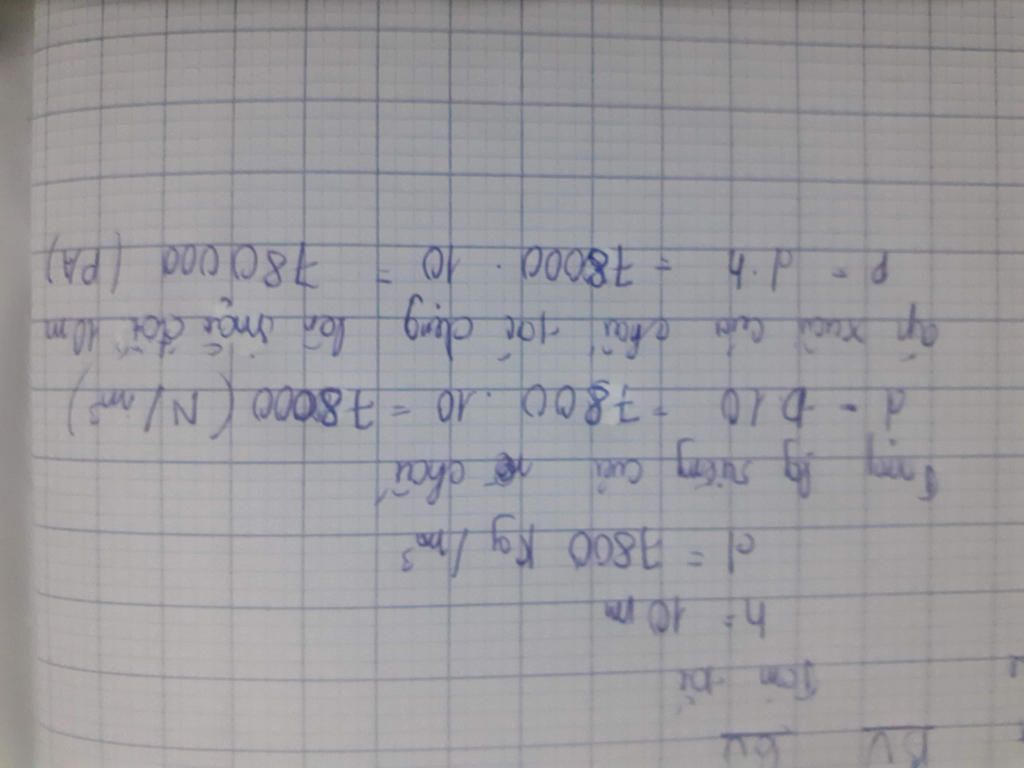 Tóm tắt
h = 10 m
d = 7800 Kg/m³
Trọng lg riêng của chất
d = D.10 = 7800 . 10 = 78000 (N/m³)
áp xuất của chất tác dụng lên mặt đất 10m
P = d.h = 78000 . 10 = 780 000 (PA)